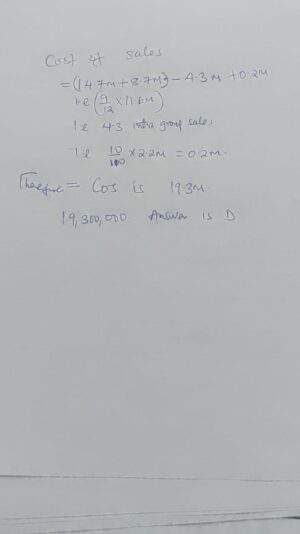 Cost of sales
= (14.7m + 8.7m) - 4.3m + 0.2m
i.e (9/12 × 11.6m)
i.e 4.3 intra group sales
i.e 10/100 × 2.2m = 0.2m.
Therefore = Cos is 19.3m.
19,300,000 Answer is D